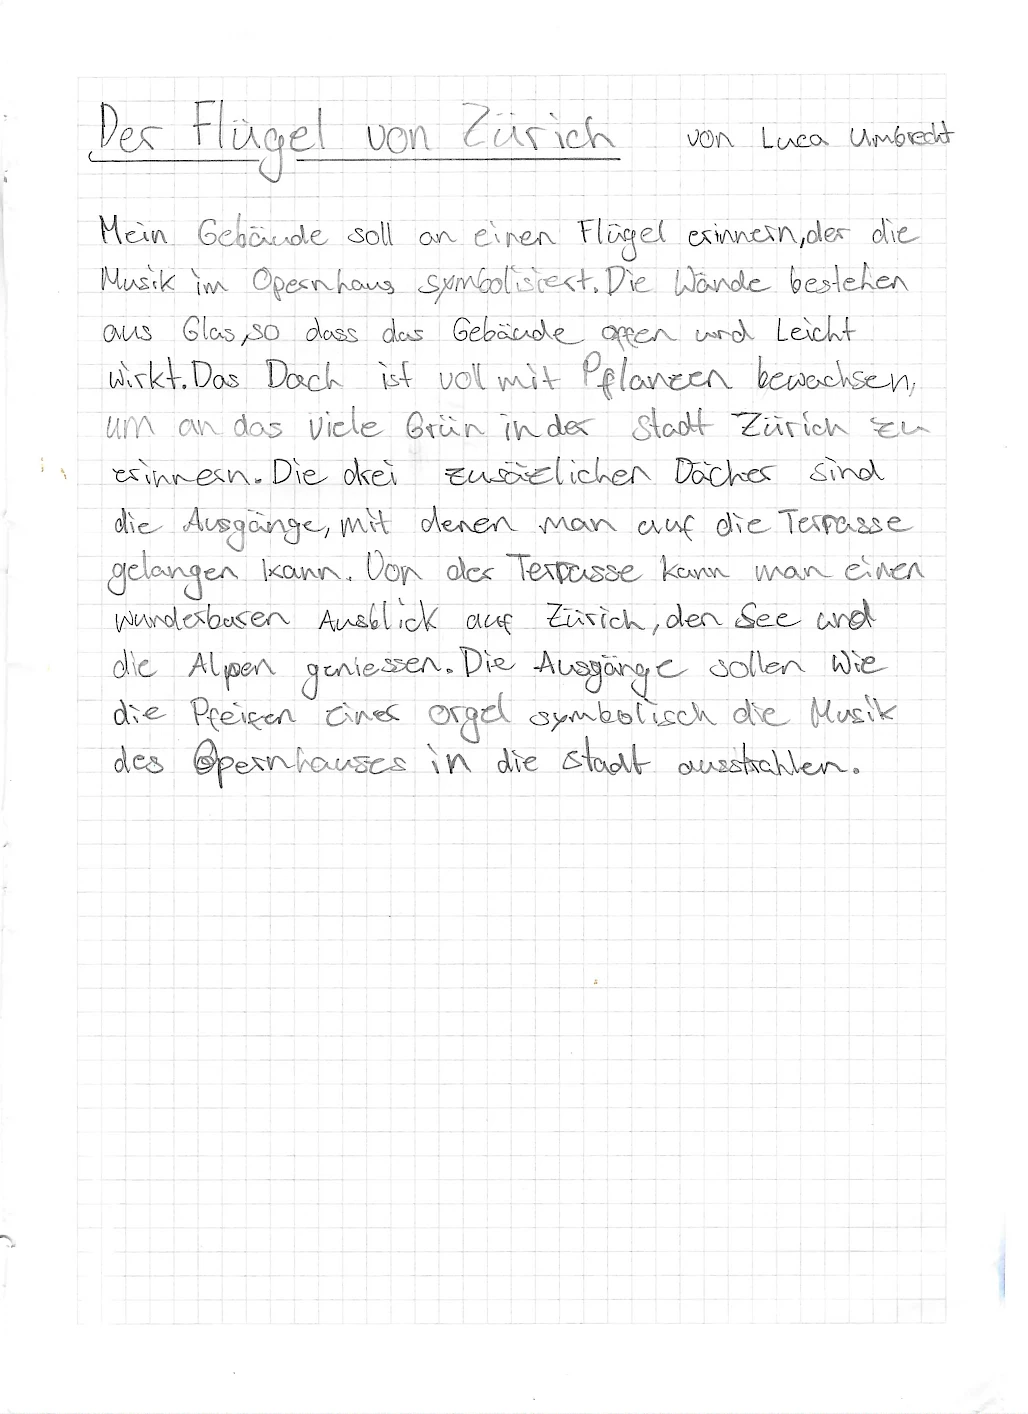 Der Flügel von Zürich von Luca Umbrecht
Mein Gebäude soll an einen Flügel erinnern, der die
Musik im Opernhaus symbolisiert. Die Wände bestehen
aus Glas, so dass das Gebäude offen und Leicht
wirkt. Das Dach ist voll mit Pflanzen bewachsen,
um an das viele Grün in der Stadt Zürich zu
erinnern. Die drei zusäzlichen Dächer sind
die Ausgänge, mit denen man auf die Terrasse
gelangen kann. Von der Terrasse kann man einen
wunderbaren Ausblick auf Zürich, den See und
die Alpen geniessen. Die Ausgänge sollen wie
die Pfeifen einer orgel symbolisch die Musik
des Opernhauses in die Stadt ausstrahlen.